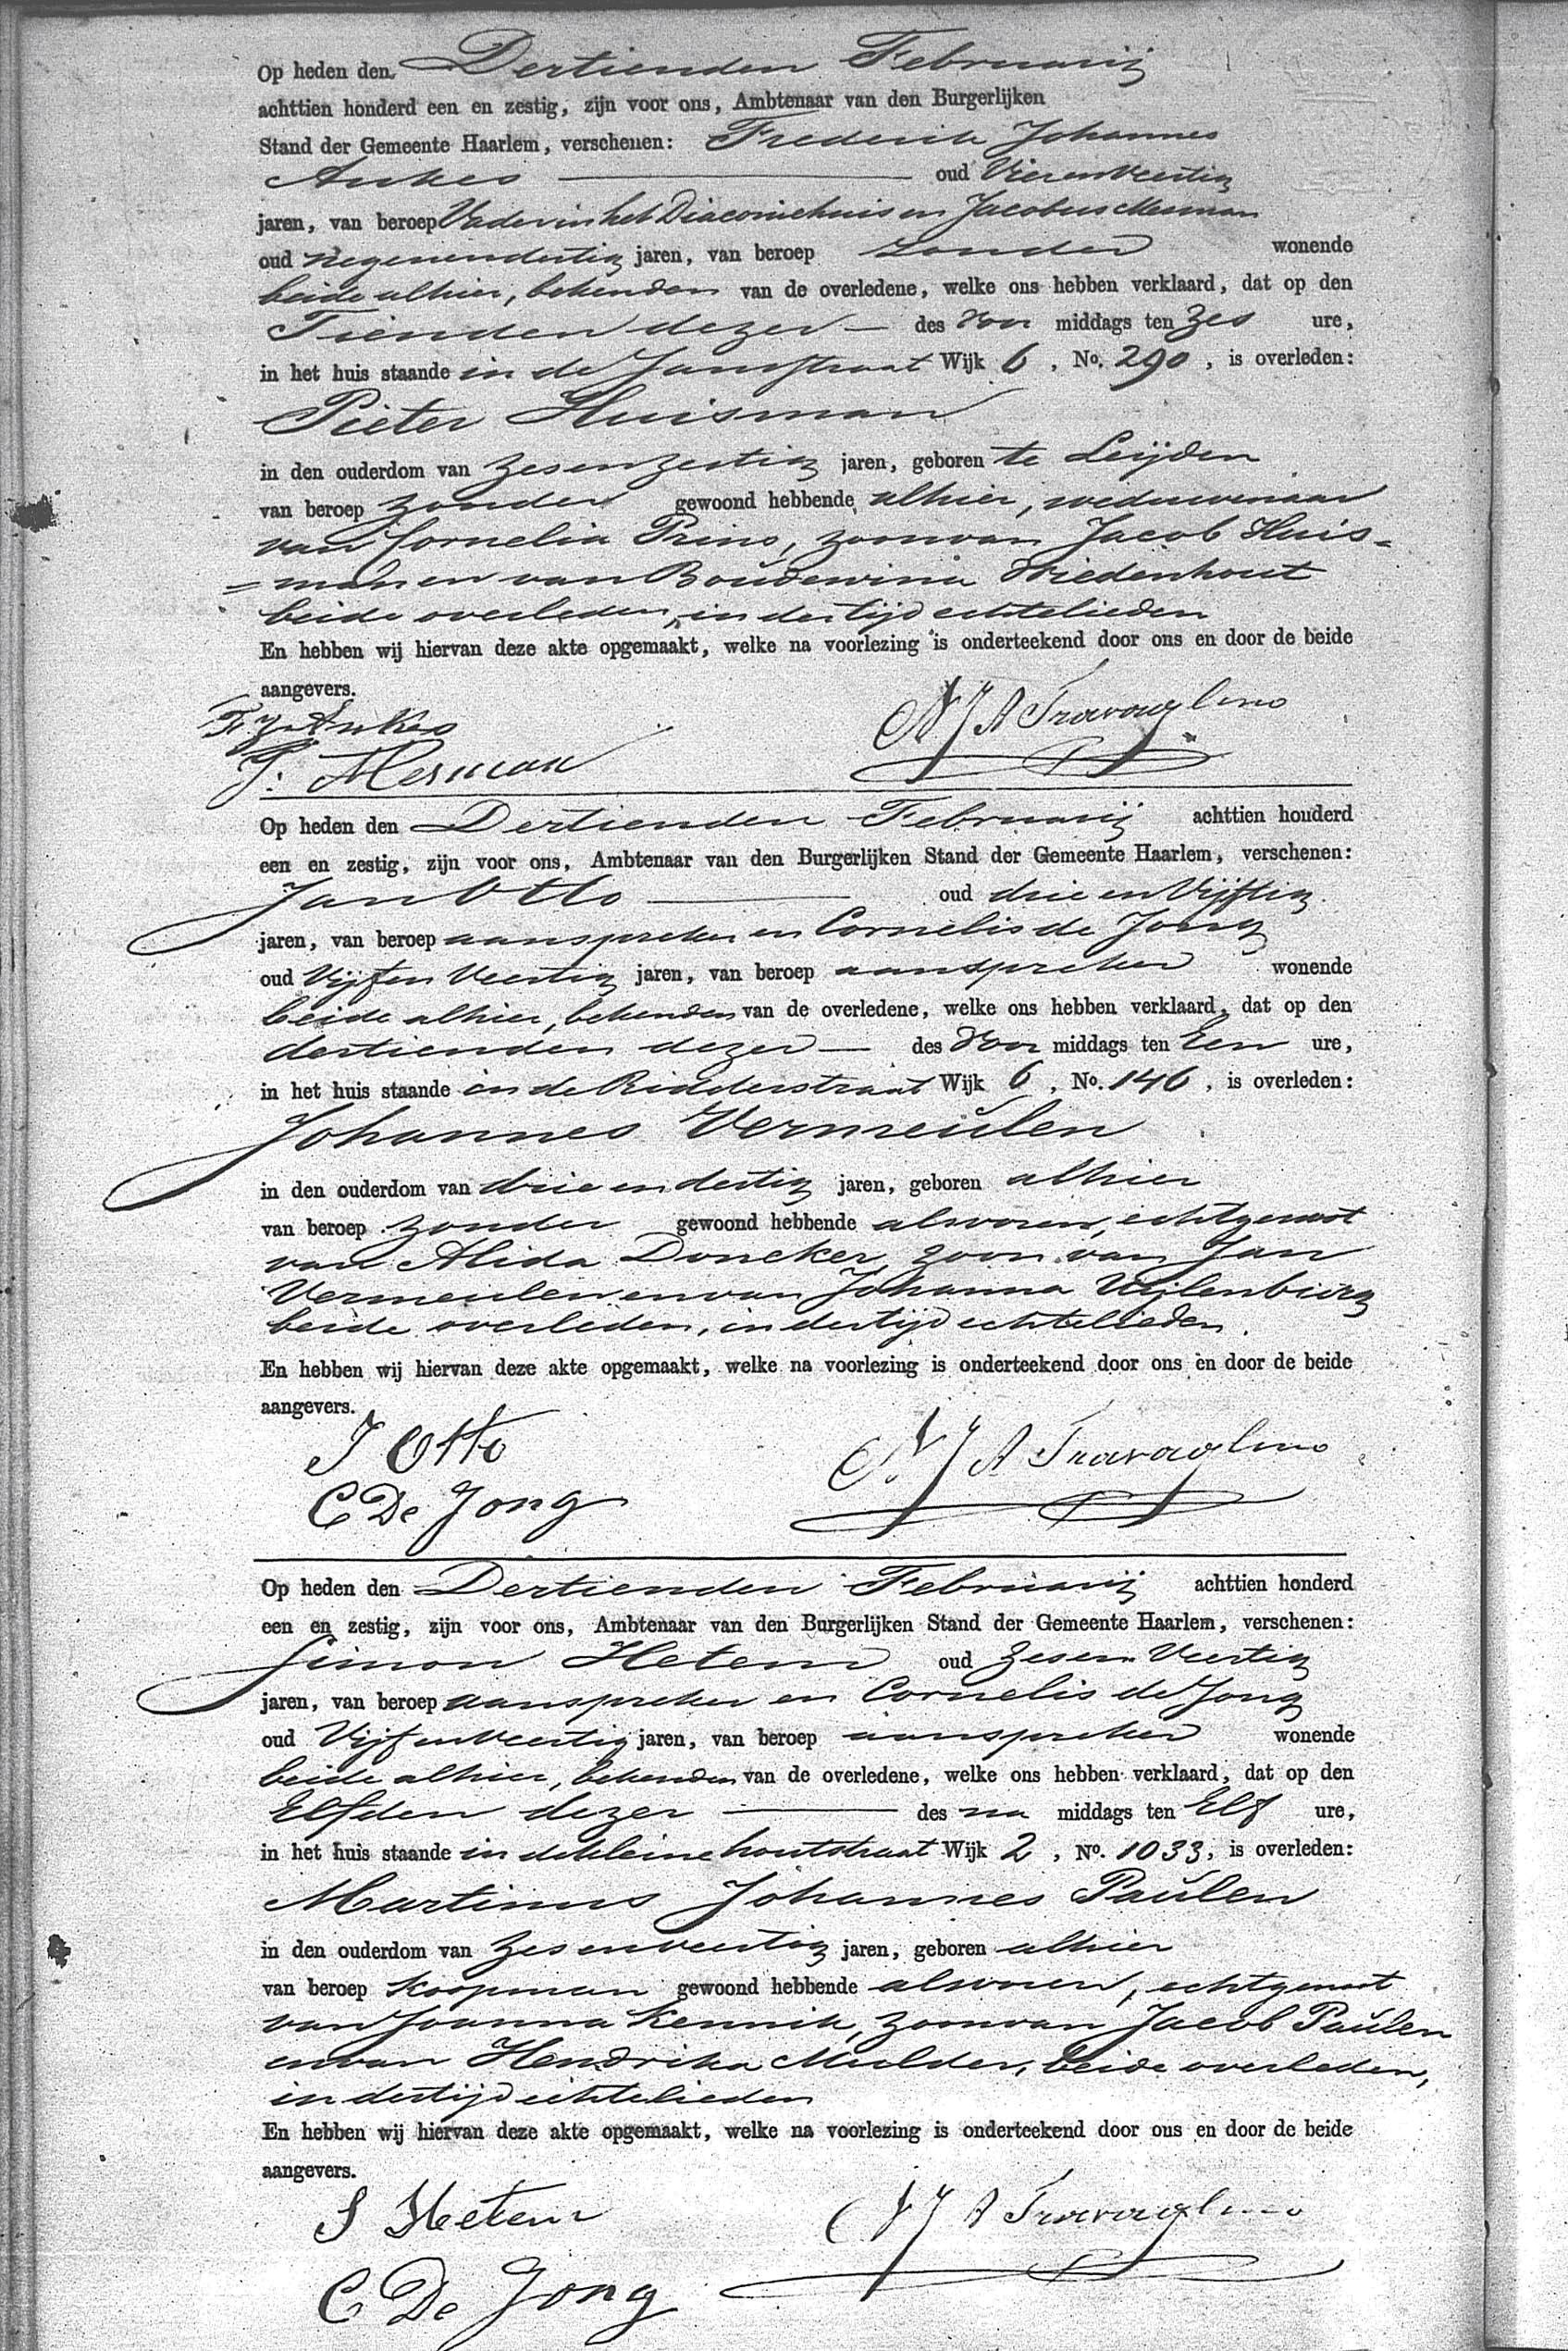 Op heden den Dertienden Februarij
achttien honderd een en zestig, zijn voor ons, Ambtenaar van den Burgerlijken
Stand der Gemeente Haarlem, verschenen: Frederik Johannes
Ankes oud Vierenveertig
jaren, van beroep Vader in het Diaconiehuis en Jacobus Mesman
oud negenendertig jaren, van beroep zonder wonende
beide alhier, bekenden van de overledene, welke ons hebben verklaard, dat op den
Tienden dezer des voor middags ten zes ure,
in het huis staande in de Jansstraat Wijk 6, No. 290, is overleden:
Pieter Huisman
in den ouderdom van zesenzestig jaren, geboren te Leijden
van beroep zonder gewoond hebbende alhier, weduwenaar
van Cornelia Prins, zoon van Jacob Huis=
=man en van Boudewina Wiedenhout
beide overleden, in der tijd echtelieden
En hebben wij hiervan deze akte opgemaakt, welke na voorlezing is onderteekend door ons en door de beide
aangevers.
F. J. Ankes
N J A Travaglino
J. Mesman
Op heden den Dertienden Februarij achttien honderd
een en zestig, zijn voor ons, Ambtenaar van den Burgerlijken Stand der Gemeente Haarlem, verschenen:
Jan Otto oud drie en Vijftig
jaren, van beroep aanspreker en Cornelis de Jong
oud Vijf en Veertig jaren, van beroep aanspreker wonende
beide alhier, bekenden van de overledene, welke ons hebben verklaard, dat op den
dertienden dezer des voor middags ten Een ure,
in het huis staande in de Ridderstraat Wijk 6, No. 146, is overleden:
Johannes Vermeulen
in den ouderdom van drie en dertig jaren, geboren alhier
van beroep zonder gewoond hebbende alvoren, echtgenoot
van Alida Doncker, zoon van Jan
Vermeulen en van Johanna Uijlenburg
beide overleden, in der tijd echtelieden.
En hebben wij hiervan deze akte opgemaakt, welke na voorlezing is onderteekend door ons en door de beide
aangevers.
J Otto
N J A Travaglino
C De Jong
Op heden den Dertienden Februarij achttien honderd
een en zestig, zijn voor ons, Ambtenaar van den Burgerlijken Stand der Gemeente Haarlem, verschenen:
Simon Hetem oud zesen Veertig
jaren, van beroep aanspreker en Cornelis de Jong
oud Vijf en Veertig jaren, van beroep aanspreker wonende
beide alhier, bekenden van de overledene, welke ons hebben verklaard, dat op den
Elfden dezer des na middags ten Elf ure,
in het huis staande in de kleine houtstraat Wijk 2, No. 1033, is overleden:
Martinus Johannes Paulen
in den ouderdom van zesenveertig jaren, geboren alhier
van beroep Koopman gewoond hebbende alvoren, echtgenoot
van Joanna Kennik, zoon van Jacob Paulen
en van Hendrika Mulder, beide overleden,
in der tijd echtelieden
En hebben wij hiervan deze akte opgemaakt, welke na voorlezing is onderteekend door ons en door de beide
aangevers.
S Hetem
N J A Travaglino
C De Jong